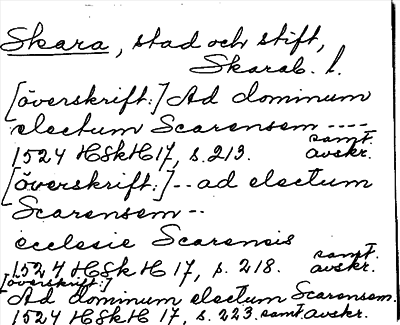 Skara, stad och stift,
Skarab. l.
[överskrift:] Ad dominum
electum Scarensem ----
1524 HSkH 17, s. 213. samt. avskr.
[överskrift:] -- ad electum
Scarensem --
ecclesie Scarensis
1524 HSkH 17, s. 218. samt. avskr.
[överskrift:]
Ad dominum electum Scarensem.
1524 HSkH 17, s. 223. samt. avskr.